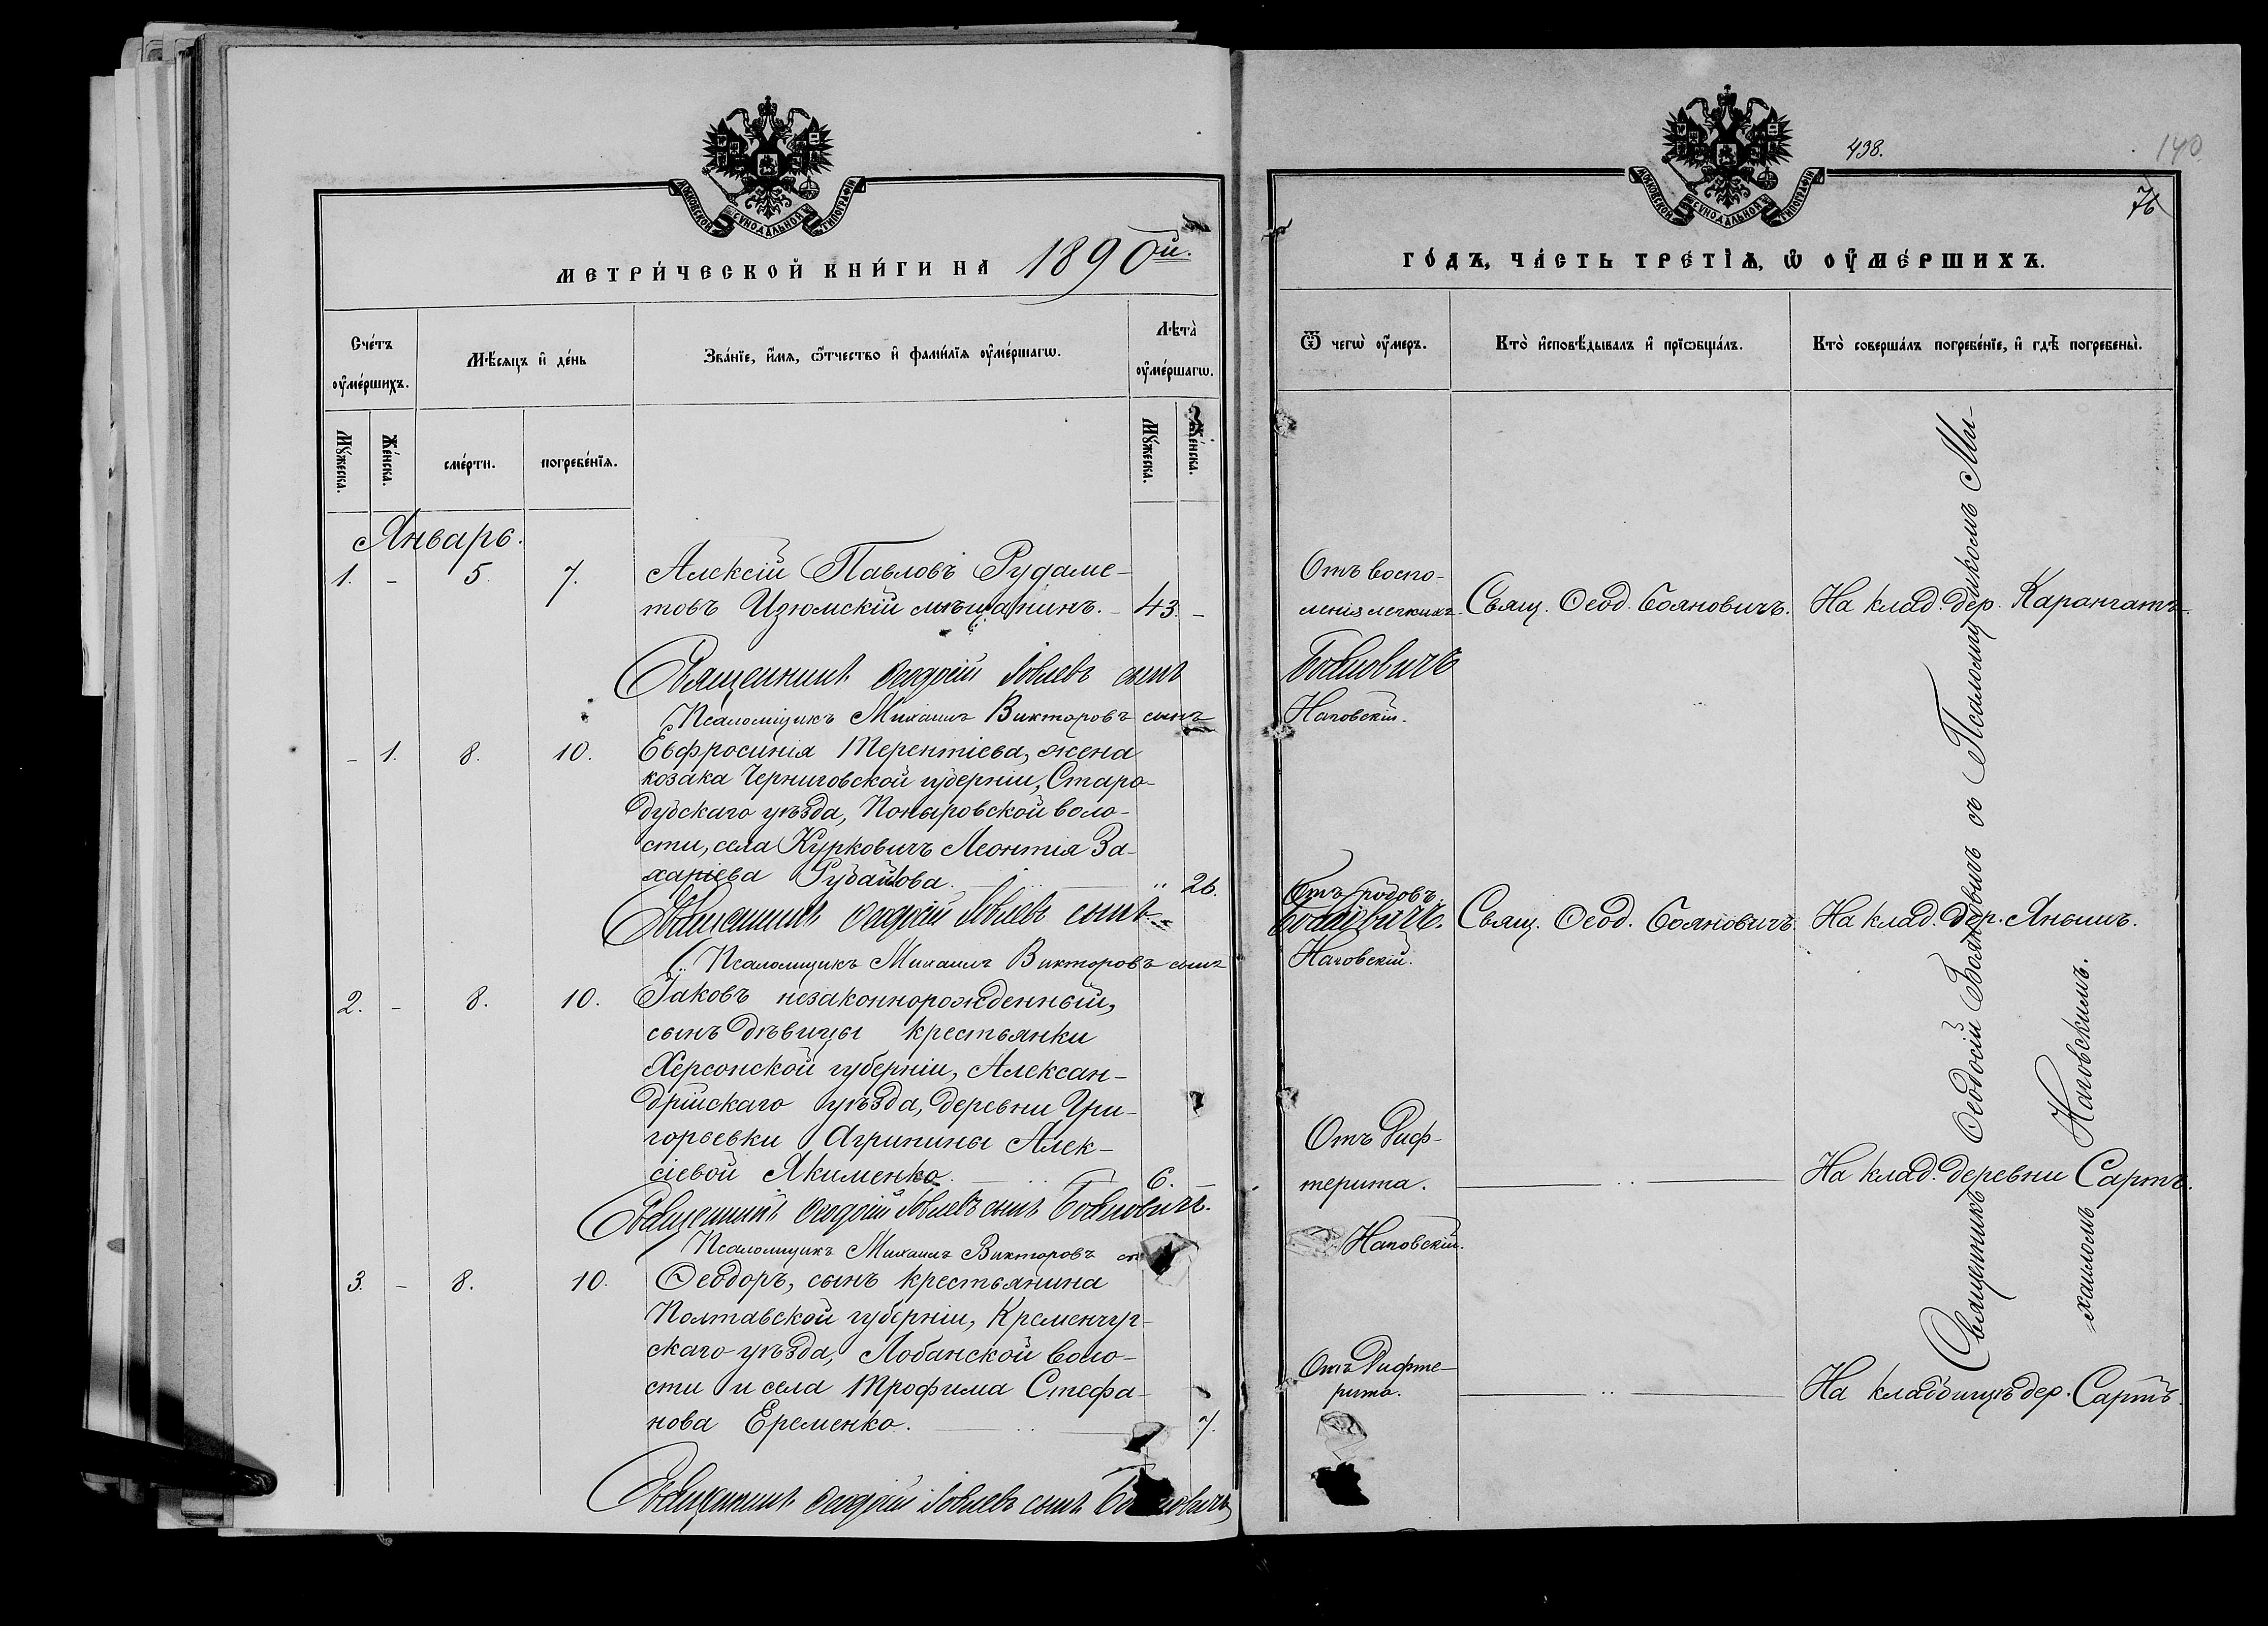 МОСКОВСКОЙ СѴНОДАЛЬНОЙ ТИПОГРАФІИ
МЕТРИ́ЧЕСКОЙ КНИ́ГИ НА 1890й.
Сче́тъ ᲂу҆ме́ршихъ.
Мѣ́сяцъ и҆ де́нь
Зва́нїе, и҆́мя, ѻ҆́тчество и҆ фами́лїя ᲂу҆ме́ршагѡ.
Лѣта̀ ᲂу҆ме́ршагѡ.
Мꙋ́жеска.
Же́нска.
сме́рти.
погребе́нїя.
Мꙋ́жеска.
Же́нска.
Январь.
1. - 5. 7. Алексій Павловъ Рудаме-
товъ Изюмскій мѣщанинъ. - 43. -
Священникъ Ѳеодосій Іовлевъ сынъ
Псаломщикъ Михаилъ Викторовъ сынъ
- 1. 8. 10. Евфросинія Терентіева, жена
козака Черниговской губерніи, Старо-
дубскаго уѣзда, Понуровской воло-
сти, села Курковичъ Леонтія За-
харіева 26.
Священникъ Ѳеодосій Іовлевъ сынъ
Псаломщикъ Михаилъ Викторовъ сынъ
2. - 8. 10. Іаковъ незаконнорожденный,
сынъ дѣвицы крестьянки
Херсонской губерніи, Алексан-
дрійскаго уѣзда, деревни Гри-
горьевки Агрипины Алек-
сіевой Якименко. 6. -
Священникъ Ѳеодосій Іовлевъ сынъ Бояновичъ.
Псаломщикъ Михаилъ Викторовъ
3. - 8. 10. Ѳеодоръ, сынъ крестьянина
Полтавской губерніи, Кременчуг-
скаго уѣзда, воло-
сти и села Трофима Стефа-
нова Еременко. 7.
Священникъ Ѳеодосій Іовлевъ сынъ Бояновичъ
438.
140
76
МОСКОВСКОЙ СѴНОДАЛЬНОЙ ТИПОГРАФІИ
ГО́ДЪ, ЧА́СТЬ ТРЕ́ТІѦ, Ѡ҆ ОУ҆МЕ́РШИХЪ.
Ѿ чегѡ̀ ᲂу҆́меръ.
Кто̀ и҆сповѣ́дывалъ и҆ прїѡбща́лъ.
Кто̀ соверша́лъ погребе́нїе, и҆ гдѣ̀ погребены̀.
Отъ воспа-
ленія легкихъ. Свящ. Ѳеод. Бояновичъ. На клад. дер. Карангатъ.
Бояновичъ
Наковскій.
Отъ родовъ.
Бояновичъ. Свящ. Ѳеод. Бояновичъ. На клад. дер. Янышъ.
Наковскій.
Отъ Диф-
терита. На клад. деревни Сартъ.
Наковскій.
Отъ Дифте-
рита. На кладбищѣ дер. Сартъ.
Священникъ Ѳеодосій Бояновичъ съ Псаломщикомъ Ми-
хаиломъ Наковскимъ.